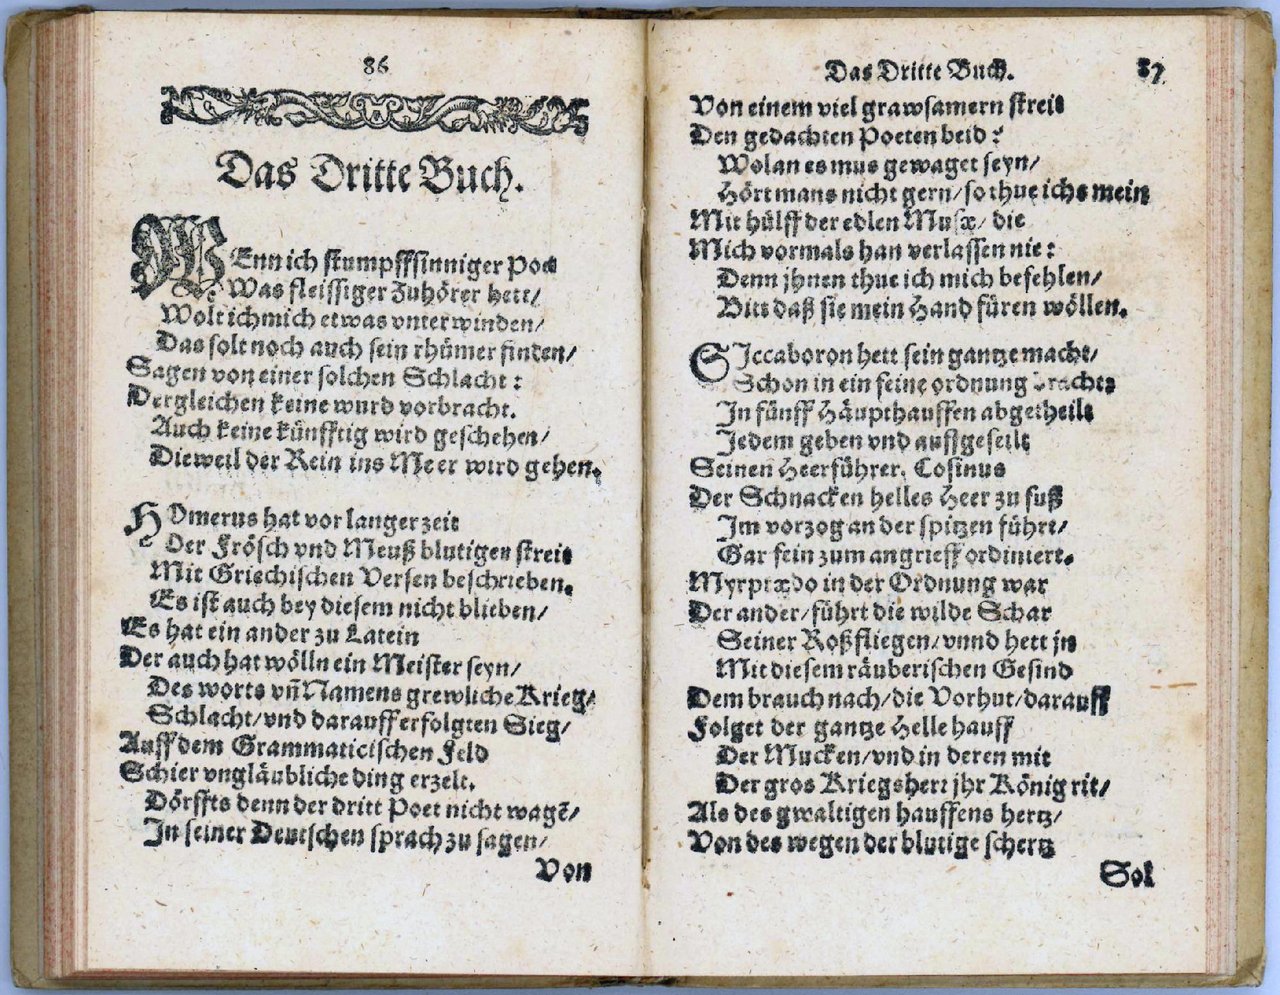 86
Das Dritte Buch.
WEnn ich stumpffsinniger Poet
Was fleissiger Zuhörer hett/
Wolt ich mich etwas vnterwinden/
Das solt noch auch sein rhümer finden/
Sagen von einer solchen Schlacht:
Dergleichen keine wurd vorbracht.
Auch keine künfftig wird geschehen/
Dieweil der Rein ins Meer wird gehen.
HOmerus hat vor langer zeit
Der Frösch vnd Meuß blutigen streit
Mit Griechischen Versen beschrieben.
Es ist auch bey diesem nicht blieben/
Es hat ein ander zu Latein
Der auch hat wölln ein Meister seyn/
Des worts vñ Namens grewliche Krieg/
Schlacht/vnd darauff erfolgten Sieg/
Auff dem Grammaticischen Feld
Schier vngläubliche ding erzelt.
Dörffts denn der dritt Poet nicht wagẽ/
In seiner Deutschen sprach zu sagen/
Von
Das Dritte Buch. 87
Von einem viel grawsamern streit
Den gedachten Poeten beid?
Wolan es mus gewaget seyn/
Hört mans nicht gern/so thue ichs mein
Mit hülff der edlen Musæ/ die
Mich vormals han verlassen nie:
Denn jhnen thue ich mich befehlen/
Bitt daß sie mein Hand füren wöllen.
SIccaboron hett sein gantze macht/
Schon in ein feine ordnung bracht
In fünff Häupthauffen abgetheilt
Jedem geben vnd auffgeseilt
Seinen Heerführer. Cosinus
Der Schnacken helles Heer zu fuß
Im vorzog an der spitzen führt/
Gar fein zum angrieff ordiniert.
Myrprædo in der Ordnung war
Der ander/führt die wilde Schar
Seiner Roßfliegen/vnnd hett jn
Mit diesem räuberischen Gesind
Dem brauch nach/die Vorhut/darauff
Folget der gantze Helle hauff
Der Mucken/vnd in deren mit
Der gros Kriegsherr jhr König rit/
Als des gwaltigen hauffens hertz/
Von des wegen der blutige schertz
Sol